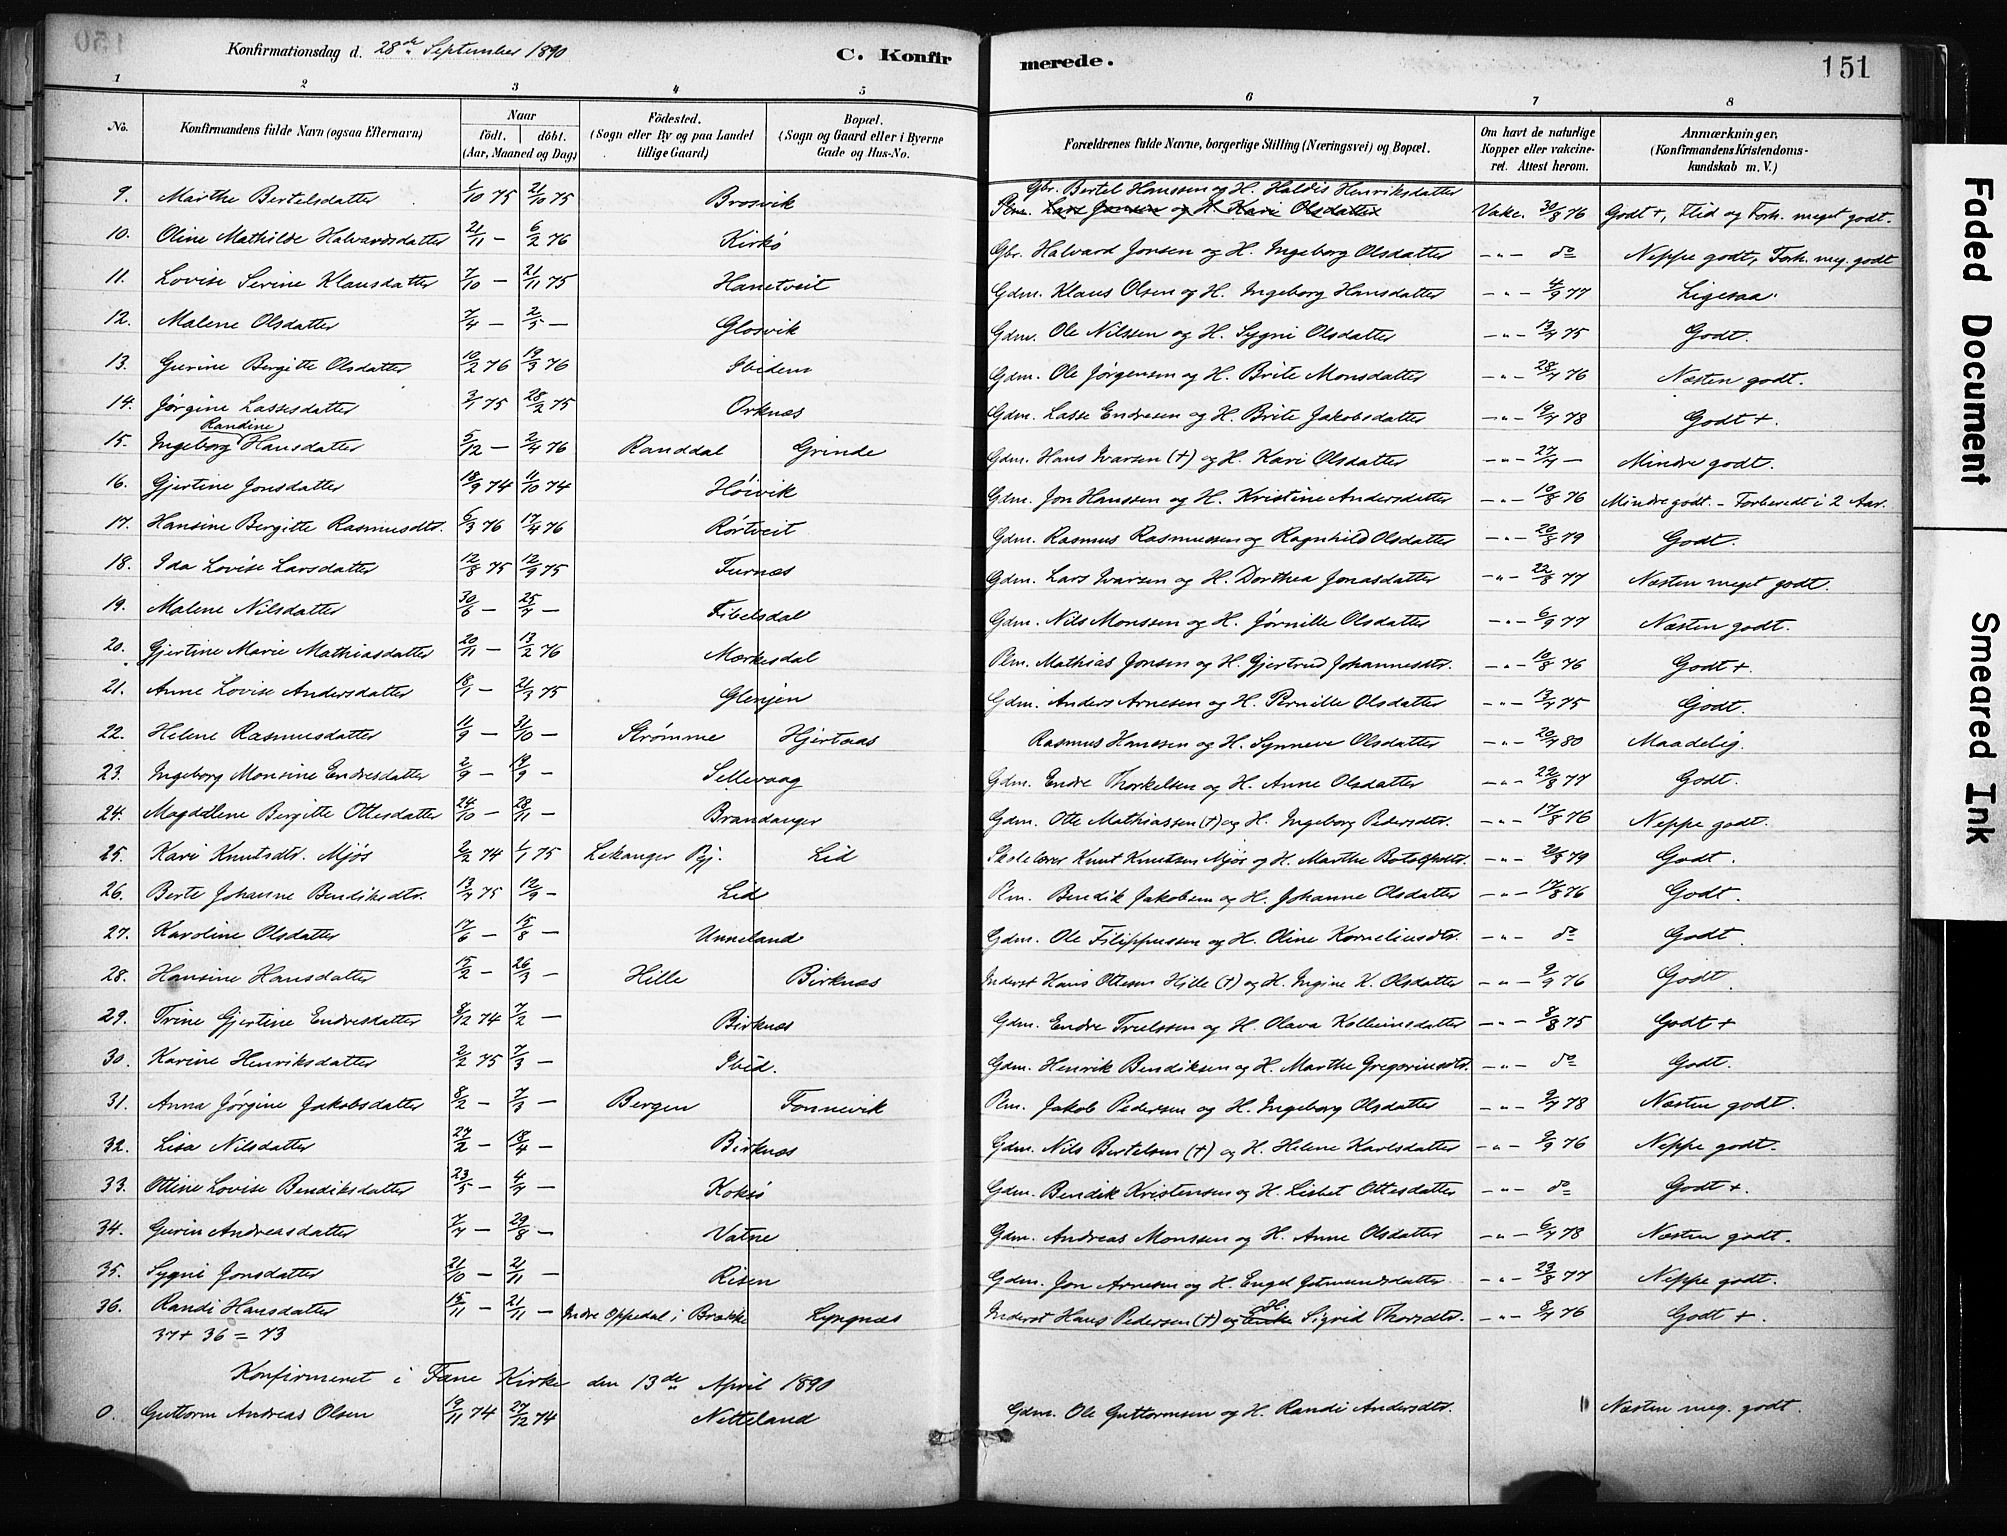 150
Konfirmationsdag d. 28de September 1890
C. Konfirmerede.
151
1 2 3 4 5 6 7 8
No. Konfirmandens fulde Navn (ogsaa Efternavn) Naar födt. döbt. (Aar, Maaned og Dag) Födested. (Sogn eller By og paa Landet tillige Gaard) Bopæl. (Sogn og Gaard eller i Byerne Gade og Hus-No. Forældrenes fulde Navne, borgerlige Stilling (Næringsvei) og Bopæl. Om havt de naturlige Kopper eller vakcineret. Attest herom. Anmærkninger, (Konfirmandens Kristendomskundskab m. V.)
Gbr. Bertel Hanssen og H. Haldis Henriksdatter
9. Marthe Bertelsdatter 1/10 75 21/10 75 Brosvik Plm. Lars Jonsen og H. Kari Olsdatter Vakc. 30/8 76 Godt +, Flid og Forh. meget godt.
10. Oline Mathilde Halvardsdatter 21/11 — 6/2 76 Kirkö Gbr. Halvard Jonsen og H. Ingeborg Olsdatter -"- do Neppe godt, Forh. meg. godt
11. Lovise Serine Klausdatter 7/10 — 21/11 75 Hanetveit Gdm. Klaus Olsen og H. Ingeborg Hansdatter -"- 4/9 77 Ligesaa.
12. Malene Olsdatter 7/4 — 2/5 — Glosvik Gdm. Ole Nilssen og H. Sygni Olsdatter -"- 13/7 75 Godt.
13. Gurine Bergitte Olsdatter 10/2 76 19/3 76 Ibidem Gdm. Ole Jørgensen og H. Brite Monsdatter -"- 28/7 76 Næsten godt.
14. Jørgine Lassesdatter 3/1 75 28/2 75 Orknæs Gdm. Lasse Endresen og H. Brite Jakobsdatter -"- 19/7 78 Godt +.
15. Ingeborg Randine Hansdatter 5/12 — 2/4 76 Randdal Grinde Gdm. Hans Ivarsen (+) og H. Kari Olsdatter -"- 27/7 — Mindre godt.
16. Gjertine Jonsdatter 18/9 74 11/10 74 Høivik Gdm. Jon Hanssen og H. Kristine Andersdatter -"- 10/8 76 Mindre godt. - Forberedt i 2 Aar.
17. Hansine Bergitte Rasmusdtr. 6/3 76 17/4 76 Rørtveit Gdm. Rasmus Rasmussen og Ragnhild Olsdatter -"- 20/8 79 Godt.
18. Ida Lovise Larsdatter 12/8 75 12/9 75 Furnæs Gdm. Lars Ivarsen og H. Dorthea Jonasdatter -"- 22/8 77 Næsten meget godt.
19. Malene Nilsdatter 30/6 — 25/7 — Fibelsdal Gdm. Nils Monssen og H. Jørnille Olsdatter -"- 6/9 77 Næsten godt.
20. Gjertine Marie Mathiasdatter 20/11 — 13/2 76 Mærkesdal Plm. Mathias Jonsen og H. Gjertrud Johannesdtr. -"- 10/8 76 Godt +
21. Anne Lovise Andersdatter 18/1 — 21/3 75 Glenjen Gdm. Anders Arnesen og H. Pernille Olsdatter -"- 13/7 75 Godt.
22. Helene Rasmusdatter 11/9 — 31/10 — Strømme Hjertaas Rasmus Hanssen og H. Synneve Olsdatter -"- 20/7 80 Maadelig.
23. Ingeborg Monsine Endresdatter 2/9 — 19/9 — Sellevaag Gdm. Endre Thorkelsen og H. Anne Olsdatter -"- 22/8 77 Godt.
24. Magdalene Birgitte Ottesdatter 24/10 — 28/11 — Brandanger Gdm. Otte Mathiassen (+) og H. Ingeborg Pedersdtr. -"- 17/8 76 Neppe godt.
25. Kari Knutsdtr. Mjøs 2/2 74 1/1 75 Lekanger Pgj. Lid Skolelærer Knut Knutsen Mjøs og H. Marthe Botolfsdtr. -"- 20/8 79 Godt.
26. Berte Johanne Bendiksdtr. 13/7 75 12/9 — Lid Plm. Bendik Jakobsen og H. Johanne Olsdatter -"- 17/8 76 Godt.
27. Karoline Olsdatter 17/6 — 15/8 — Unneland Gdm. Ole Filippussen og H. Oline Korneliusdtr. -"- do Godt.
28. Hansine Hansdatter 15/2 — 26/3 — Hille Birknæs Inderst Hans Ottesen Hille (+) og H. Ingine K. Olsdatter -"- 9/9 76 Godt.
29. Trine Gjertine Endresdatter 9/12 74 7/2 — Birknæs Gdm. Endre Truelssen og H. Olava Kolbeinsdatter -"- 8/8 75 Godt +
30. Karine Henriksdatter 2/2 75 7/3 — Ibid. Gdm. Henrik Bendiksen og H. Marthe Gregoriusdtr. -"- do Godt.
31. Anna Jørgine Jakobsdatter 8/2 — 7/3 — Bergen Fonnevik Plm. Jakob Pedersen og H. Ingeborg Olsdatter -"- 9/7 78 Næsten godt.
32. Lisa Nilsdatter 27/2 — 18/4 — Birknæs Gdm. Nils Bertelsen (+) og H. Helene Karlsdatter -"- 9/9 76 Neppe godt.
33. Ottine Lovise Bendiksdatter 23/5 — 4/7 — Koksö Gdm. Bendik Kristensen og H. Lisbet Ottesdatter -"- do Godt +.
34. Gurin Andreasdatter 7/7 — 29/8 — Vatne Gdm. Andreas Monssen og H. Anne Olsdatter -"- 6/7 78 Næsten godt.
35. Sygni Jonsdatter 21/10 — 21/11 — Risen Gdm. Jon Arnesen og H. Engel Jetmundsdatter -"- 23/8 77 Neppe godt.
36. Randi Hansdatter 15/11 — 21/11 — Indre Oppedal i Brække Lyngnæs Inderst Hans Pedersen (+) og H. Sigrid Thorsdtr. -"- 9/7 76 Godt +.
37 + 36 = 73
Konfirmeret i Fane Kirke den 13de April 1890
0. Guttorm Andreas Olsen 19/11 74 27/12 74 Netteland Gdm. Ole Guttormsen og H. Randi Andersdtr. Næsten meg. godt.
Faded Document
Smeared Ink